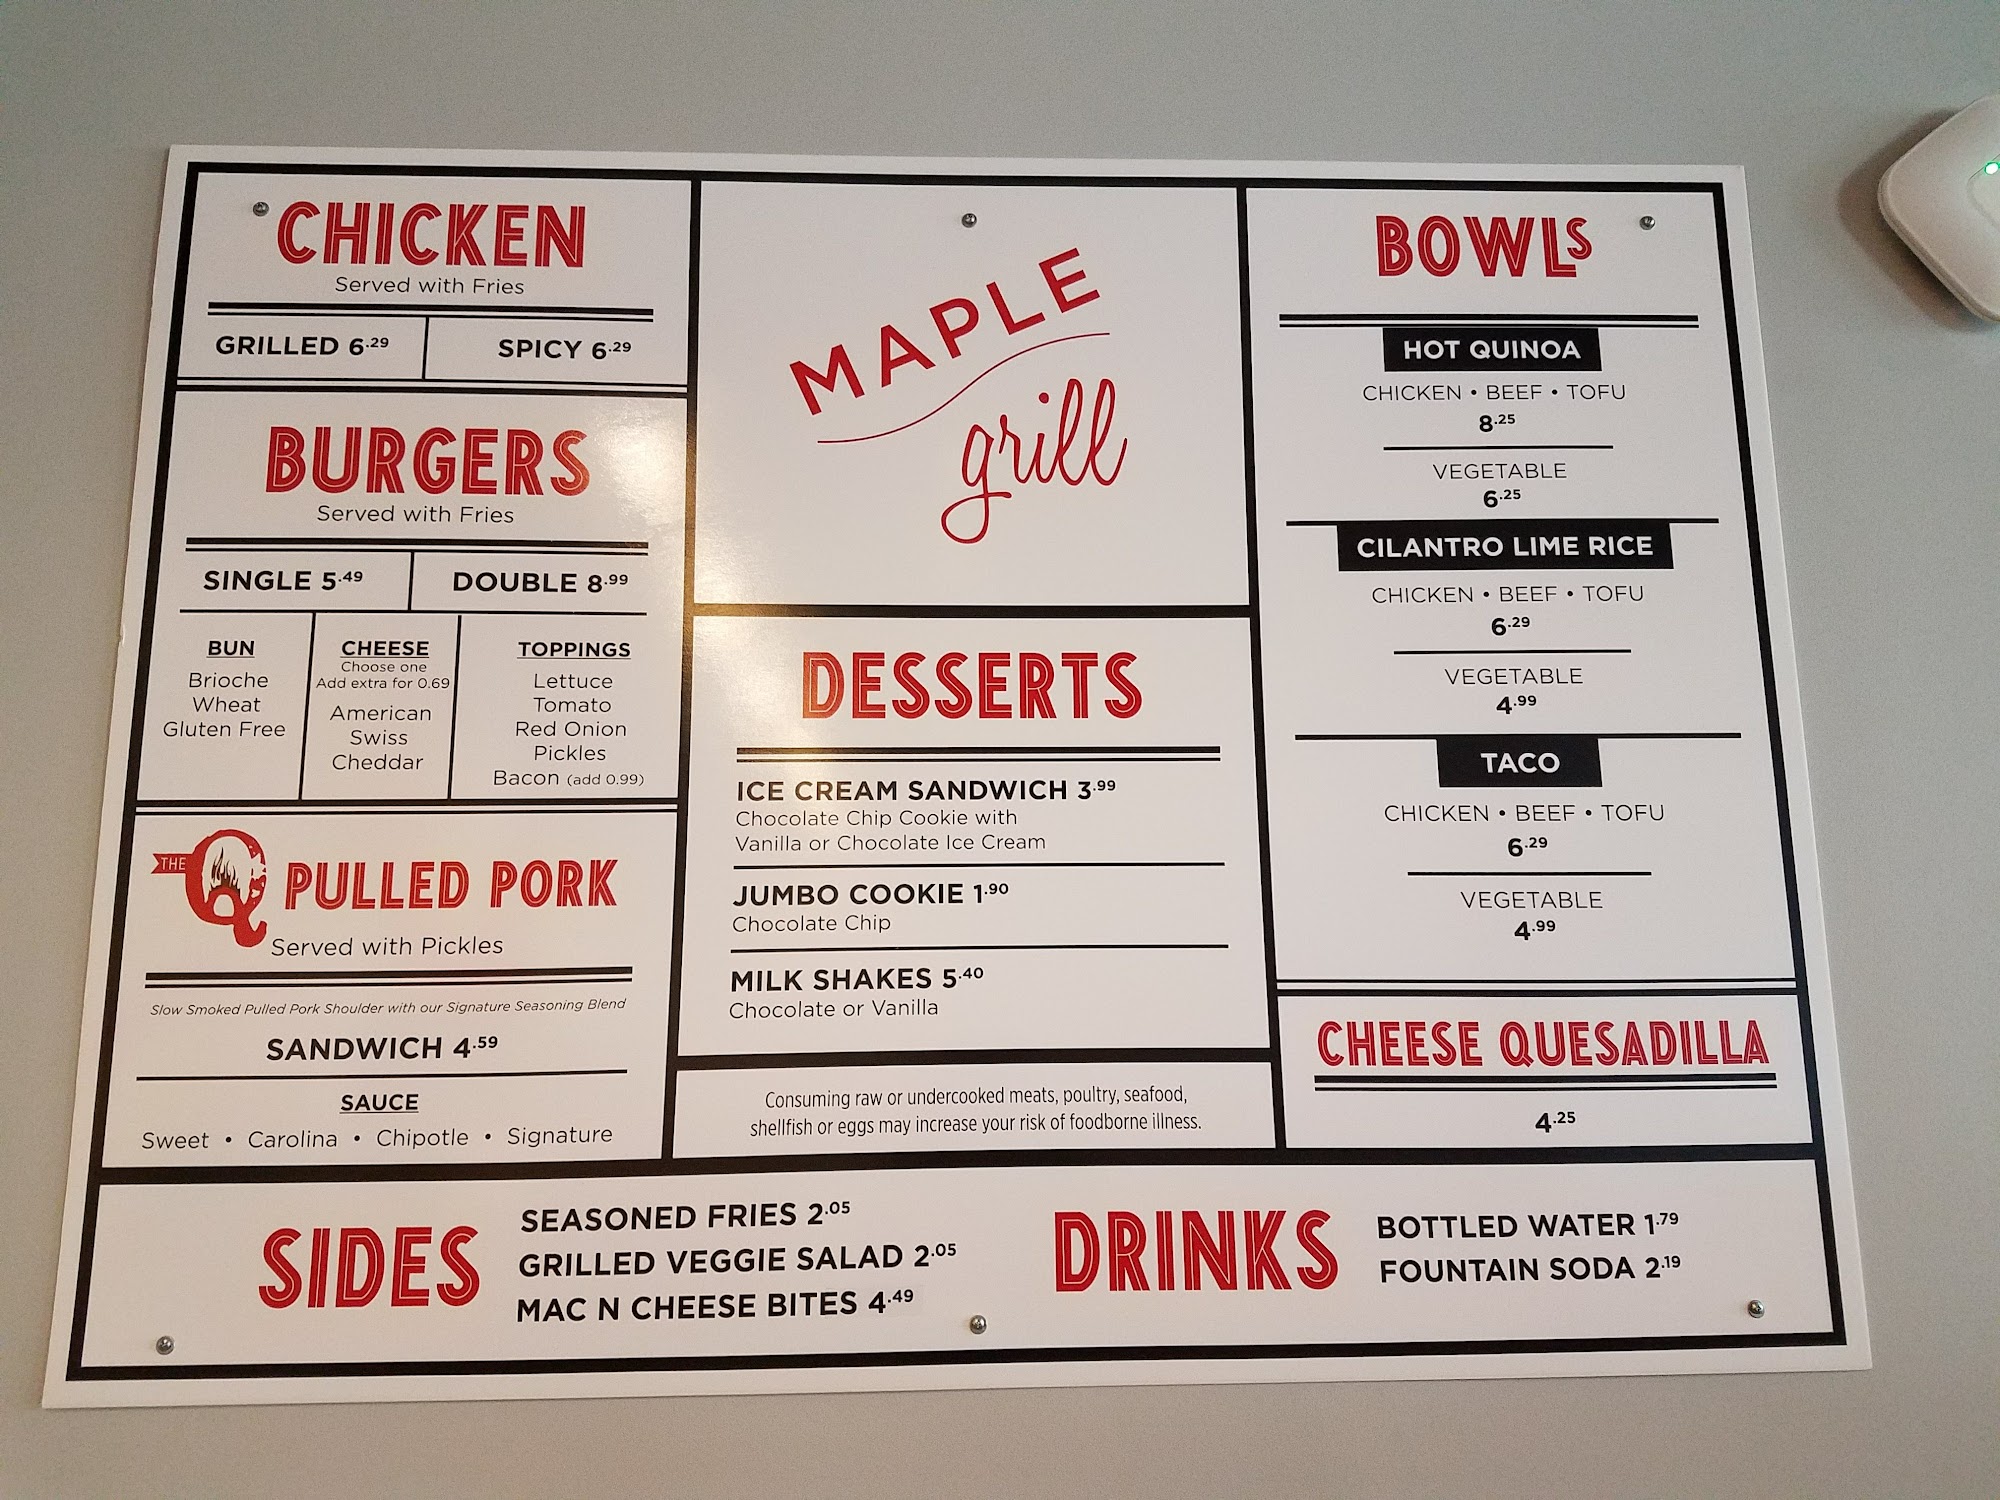 CHICKEN
Served with Fries
GRILLED 6.29
SPICY 6.29
BURGERS
Served with Fries
SINGLE 5.49
DOUBLE 8.99
BUN
Brioche
Wheat
Gluten Free
CHEESE
Choose one
Add extra for 0.69
American
Swiss
Cheddar
TOPPINGS
Lettuce
Tomato
Red Onion
Pickles
Bacon (add 0.99)
THE Q PULLED PORK
Served with Pickles
Slow Smoked Pulled Pork Shoulder with our Signature Seasoning Blend
SANDWICH 4.59
SAUCE
Sweet • Carolina • Chipotle • Signature
MAPLE
grill
DESSERTS
ICE CREAM SANDWICH 3.99
Chocolate Chip Cookie with
Vanilla or Chocolate Ice Cream
JUMBO COOKIE 1.90
Chocolate Chip
MILK SHAKES 5.40
Chocolate or Vanilla
Consuming raw or undercooked meats, poultry, seafood,
shellfish or eggs may increase your risk of foodborne illness.
BOWLS
HOT QUINOA
CHICKEN • BEEF • TOFU
8.25
VEGETABLE
6.25
CILANTRO LIME RICE
CHICKEN • BEEF • TOFU
6.29
VEGETABLE
4.99
TACO
CHICKEN • BEEF • TOFU
6.29
VEGETABLE
4.99
CHEESE QUESADILLA
4.25
SIDES
SEASONED FRIES 2.05
GRILLED VEGGIE SALAD 2.05
MAC N CHEESE BITES 4.49
DRINKS
BOTTLED WATER 1.79
FOUNTAIN SODA 2.19